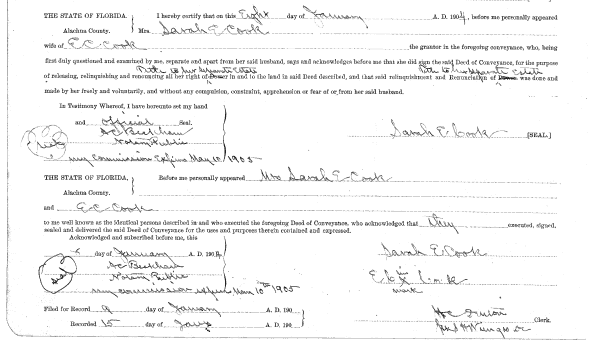 THE STATE OF FLORIDA, I hereby certify that on this Eight day of January A. D. 1904, before me personally appeared
Alachua County. Mrs. Sarah E Cook
wife of E C Cook the grantor in the foregoing conveyance, who, being
first duly questioned and examined by me, separate and apart from her said husband, says and acknowledges before me that she did sign the said Deed of Conveyance, for the purpose
Title to her Separate Estate Title to her separate estate
of releasing, relinquishing and renouncing all her right of Dower in and to the land in said Deed described, and that said relinquishment and Renunciation of Dower was done and
made by her freely and voluntarily, and without any compulsion, constraint, apprehension or fear of or from her said husband.
In Testimony Whereof, I have hereunto set my hand
and official Seal.
Notary Public
Sarah E Cook [SEAL.]
my commission expires May 10 1905
THE STATE OF FLORIDA, Before me personally appeared Mrs Sarah E Cook
Alachua County.
and E C Cook
to me well known as the identical persons described in and who executed the foregoing Deed of Conveyance, who acknowledged that they executed, signed,
sealed and delivered the said Deed of Conveyance for the uses and purposes therein contained and expressed.
Acknowledged and subscribed before me, this
day of January A. D. 1904 Sarah E Cook
Notary Public
mark
my commission expires May 10th 1905
Filed for Record 9 day of January A. D. 190
Clerk.
Recorded 15 day of Jany A. D. 190